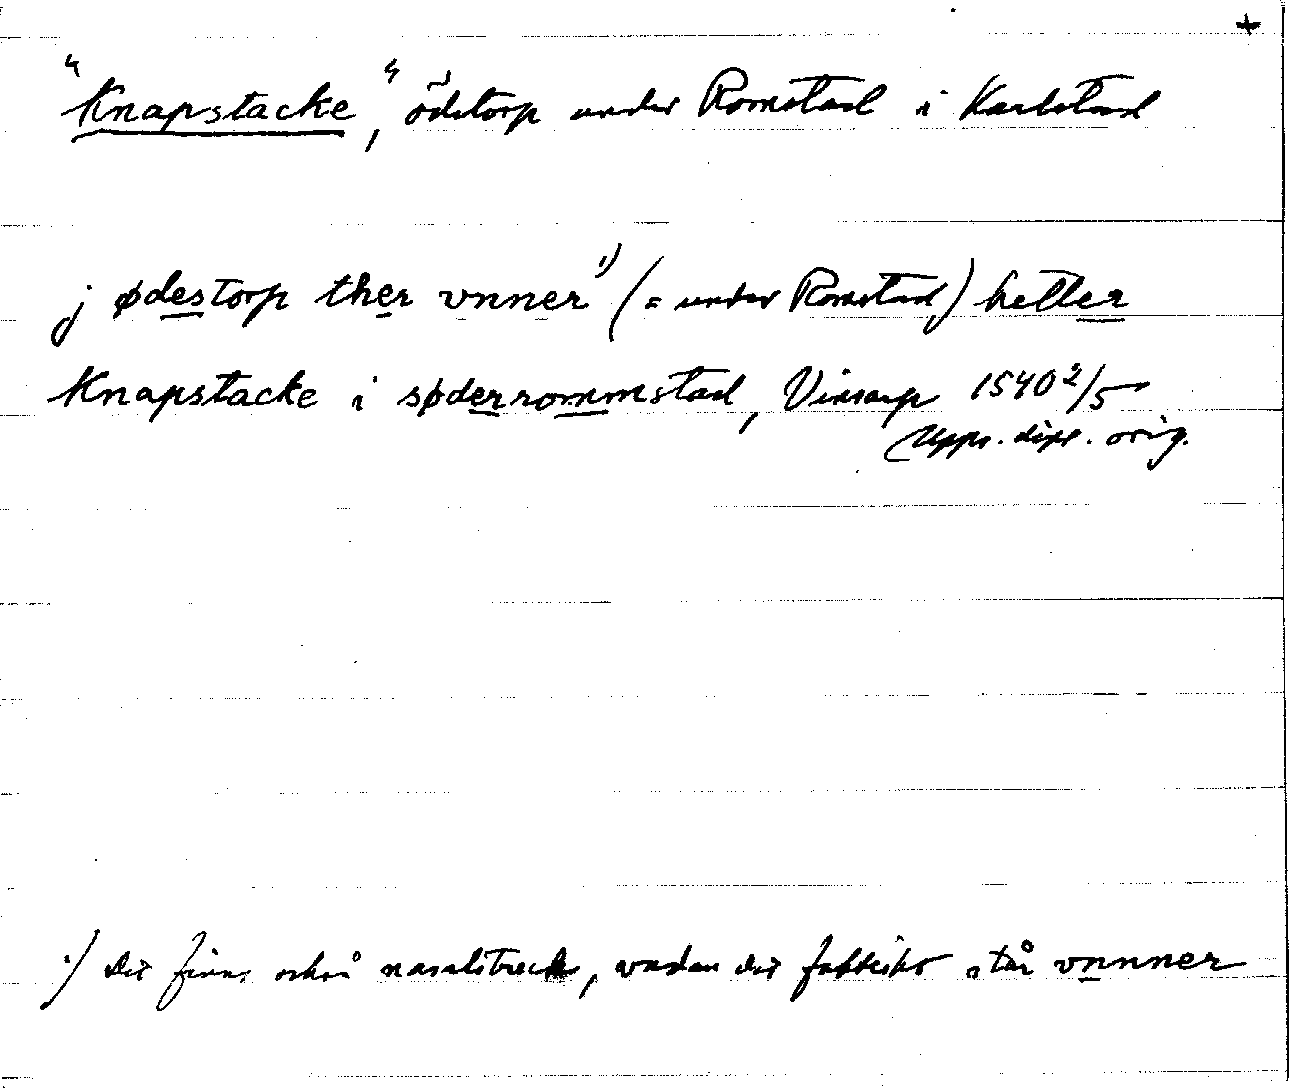 +
"Knapstacke", ödetorp under Romstad i Karlstad
j ødestorp ther vnner 1) (= under Romstad) hetter
Knapstacke i søderrommstad, Vinsarp 1540 2/5
Upps. dipl. orig.
1) det finns också nasalstreck, vadan det faktiskt står vnnner